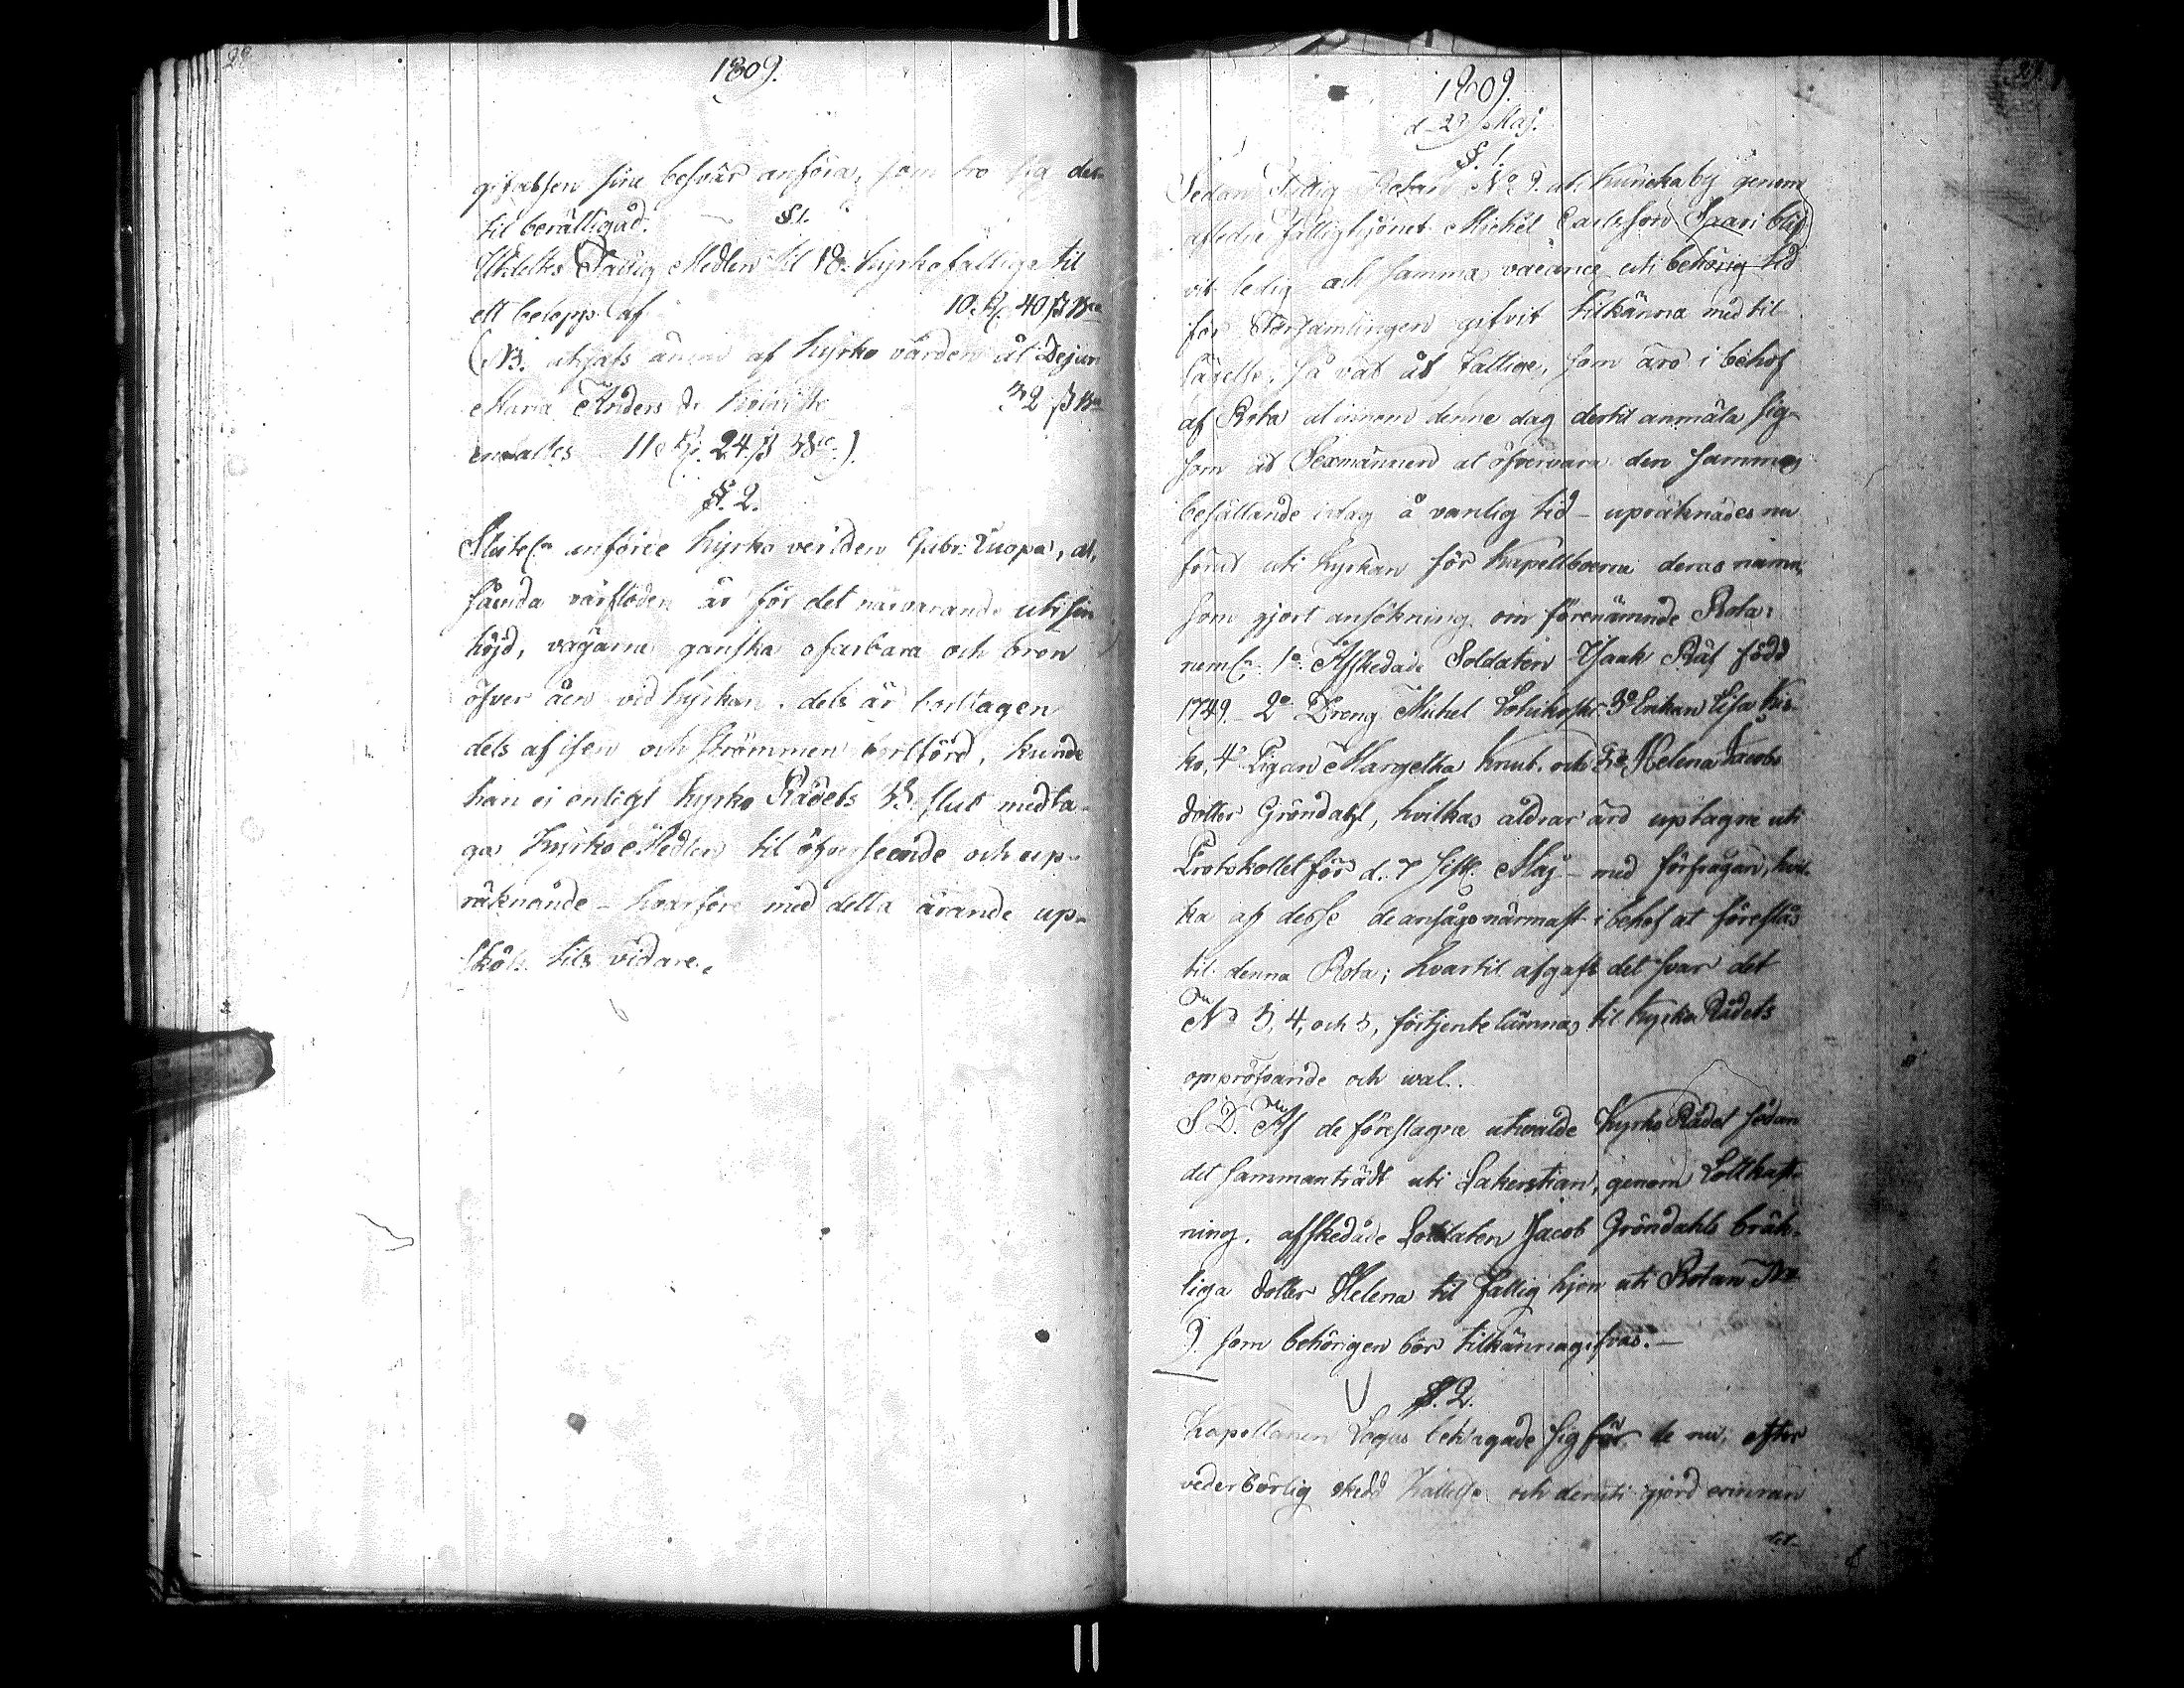 28
1809.
gifvelsen sine besvär anföra, som tro sig der
til berättigad.
§ 1.
Utdeltes Fattig Medlen til 18. Kyrkofattige til
ett belopp af 10. Rd. 40 ß Bco
(NB. utgafs ännu af Kyrko värden åt
Maria Anders dr 32 ß Bco
11 Rd. 24. ß Bco.)
§. 2.
Slutel. anförde Kyrko verden Gabr. Luopa, at,
såsom vårfloden är för det närvarande uti sin
höjd, vägarne ganska ofarbara och bron
öfver åen vid Kyrkan, dels är borttagen
dels af isen och strömmen bortförd, kunde
han ei enligt Kyrko Rådets Beslut medta-
ga Kyrko Medlen til öfverseende och up-
räknande - hvarföre med detta ärande up-
sköts tils vidare.
29
1809.
d. 29 Maj.
§. 1.
Sedan Fattig Rotan No 9. at by genom
aflidne fattighjonet Michel Carlsson Saari blif
vit ledig och samma vacance uti behörig tid
för Församlingen gifvit tilkänna med til
låtelse, så väl åt fattige, som äro i behof
af Rota at innom denne dag dertil anmäla sig
som åt Sexmännerne at öfvervara den sammas
besättande i dag å vanlig tid - upräknades nu
först uti Kyrkan för Kapellboerne deras namn,
som gjort ansökning om förenämnde Rota:
neml. 1o. Afskedade Soldaten Isaak Rät född
1749. - 2o Dreng Michel 3o Enkan Lisa Kis-
ko, 4o Pigan Margetha Knut. och 5o Helena Jacobs
dotter Gröndahl, hvilkas åldrar äro uptagne uti
Protokollet för d. 7 sistl. Maj - med förfrågan, hvil-
ka af desse de ansågo närmast i behof at föreslås
til denna Rota; hvartil afgafs det svar det
No 3, 4, och 5, förtjente lämnas til Kyrko Rådets
pröfvande och wal.
S. D. Af de föreslagne utwalde Kyrko Rådet sedan
det sammanträdt uti Sakerstian, genom Lottkast-
ning, afskedade Soldaten Jacob Gröndahls bräk-
liga dotter Helena til fattig hjon uti Rotan No
9. som behörigen bör tilkännagifvas. -
§. 2.
Kapellanen Logus beklagade sig för de nu, efter
vederbörlig skedd Kallelse och deruti gjord erinran
det